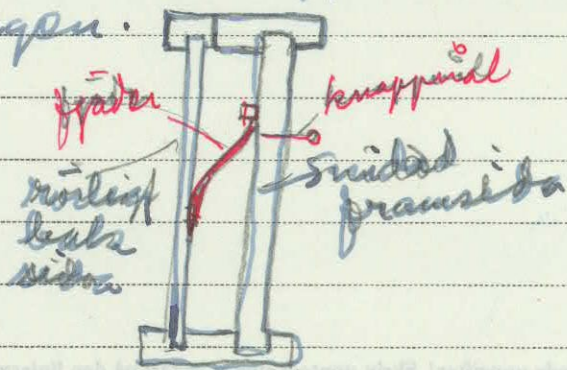 fjäder
knappnål
rörligt
bak
sida
snidad
framsida